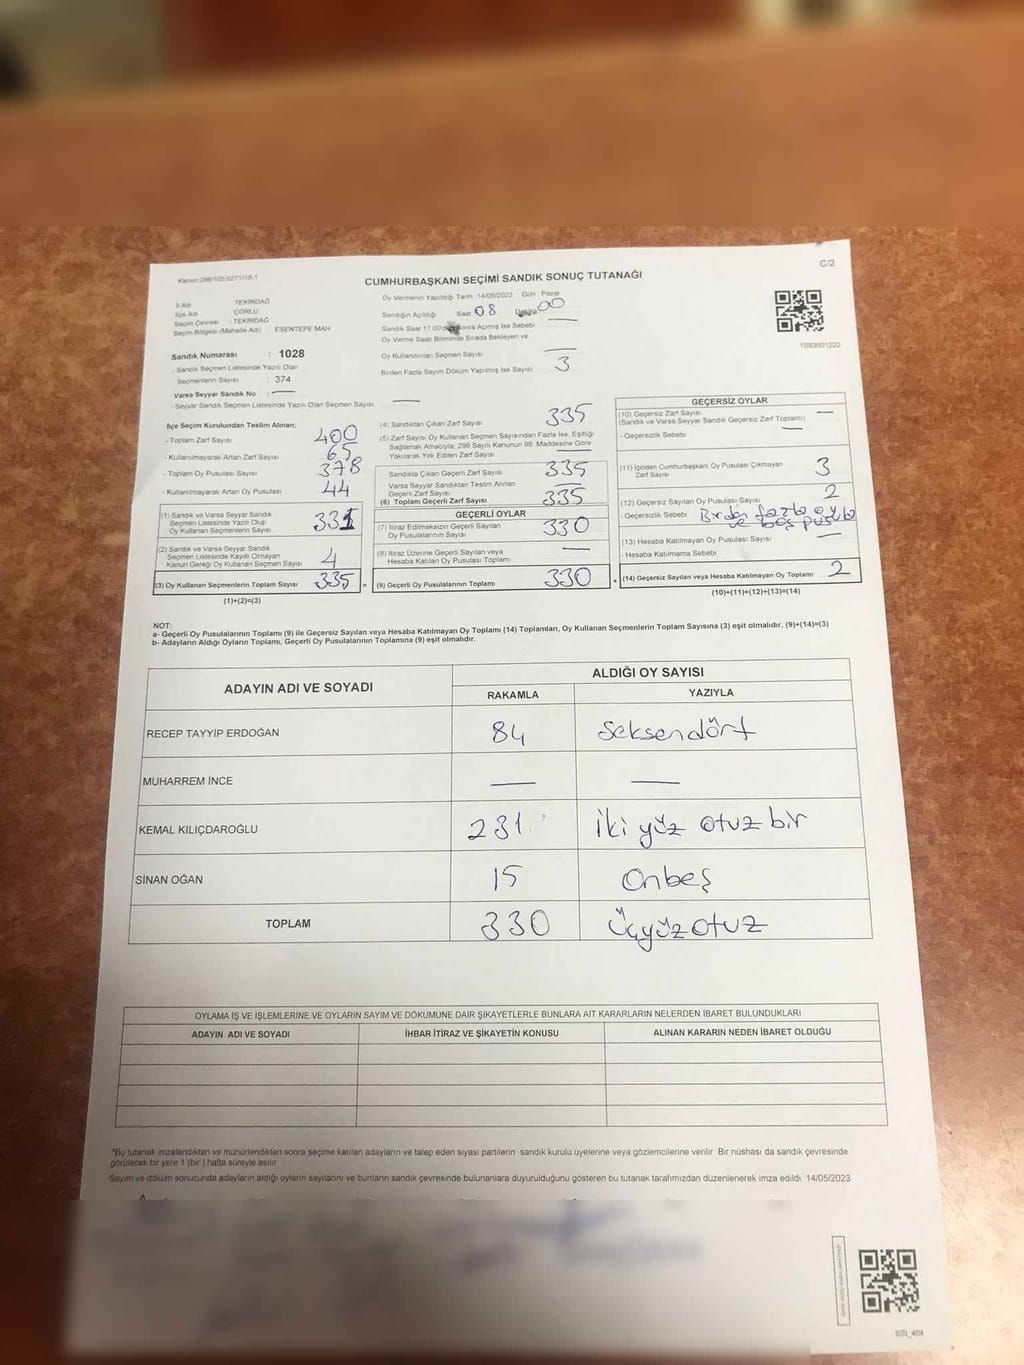 C/2
Kanun:298/105 6271/18-1
CUMHURBAŞKANI SEÇİMİ SANDIK SONUÇ TUTANAĞI
İl Adı TEKİRDAĞ
İlçe Adı ÇORLU
Seçim Çevresi : TEKİRDAĞ
Seçim Bölgesi (Mahalle Adı) ESENTEPE MAH
Sandık Numarası : 1028
- Sandık Seçmen Listesinde Yazılı Olan
Seçmenlerin Sayısı : 374
Varsa Seyyar Sandık No : —
- Seyyar Sandık Seçmen Listesinde Yazılı Olan Seçmen Sayısı —
Oy Vermenin Yapıldığı Tarih 14/05/2023 Gün : Pazar
Sandığın Açıldığı Saat 08 Dakika 00
Sandık Saat 17.00'den Sonra Açılmış İse Sebebi —
Oy Verme Saati Bitiminde Sırada Bekleyen ve
Oy Kullandırılan Seçmen Sayısı —
Birden Fazla Sayım Döküm Yapılmış İse Sayısı 3
1093601222
İlçe Seçim Kurulundan Teslim Alınan;
- Toplam Zarf Sayısı 400
- Kullanılmayarak Artan Zarf Sayısı 65
- Toplam Oy Pusulası Sayısı 378
- Kullanılmayarak Artan Oy Pusulası 44
(1) Sandık ve Varsa Seyyar Sandık
Seçmen Listesinde Yazılı Olup
Oy Kullanan Seçmenlerin Sayısı 331
(2) Sandık ve Varsa Seyyar Sandık
Seçmen Listesinde Kayıtlı Olmayan
Kanun Gereği Oy Kullanan Seçmen Sayısı 4
(3) Oy Kullanan Seçmenlerin Toplam Sayısı 335 =
(1)+(2)=(3)
(4) Sandıktan Çıkan Zarf Sayısı 335
(5) Zarf Sayısı Oy Kullanan Seçmen Sayısından Fazla İse, Eşitliği
Sağlamak Amacıyla, 298 Sayılı Kanunun 98. Maddesine Göre
Yakılarak Yok Edilen Zarf Sayısı —
Sandıkta Çıkan Geçerli Zarf Sayısı 335
Varsa Seyyar Sandıktan Teslim Alınan
Geçerli Zarf Sayısı —
(6) Toplam Geçerli Zarf Sayısı 335
GEÇERLİ OYLAR
(7) İtiraz Edilmeksizin Geçerli Sayılan
Oy Pusulalarının Sayısı 330
(8) İtiraz Üzerine Geçerli Sayılan veya
Hesaba Katılan Oy Pusulası Toplamı —
(9) Geçerli Oy Pusulalarının Toplamı 330 +
GEÇERSİZ OYLAR
(10) Geçersiz Zarf Sayısı —
(Sandık ve Varsa Seyyar Sandık Geçersiz Zarf Toplamı)
- Geçersizlik Sebebi —
(11) İçinden Cumhurbaşkanı Oy Pusulası Çıkmayan
Zarf Sayısı 3
(12) Geçersiz Sayılan Oy Pusulası Sayısı 2
- Geçersizlik Sebebi Birden fazla oyla
ve boş pusula
(13) Hesaba Katılmayan Oy Pusulası Sayısı —
- Hesaba Katılmama Sebebi
(14) Geçersiz Sayılan veya Hesaba Katılmayan Oy Toplamı 2
(10)+(11)+(12)+(13)=(14)
NOT:
a- Geçerli Oy Pusulalarının Toplamı (9) ile Geçersiz Sayılan veya Hesaba Katılmayan Oy Toplamı (14) Toplamları, Oy Kullanan Seçmenlerin Toplam Sayısına (3) eşit olmalıdır. (9)+(14)=(3)
b- Adayların Aldığı Oyların Toplamı, Geçerli Oy Pusulalarının Toplamına (9) eşit olmalıdır.
ADAYIN ADI VE SOYADI
ALDIĞI OY SAYISI
RAKAMLA YAZIYLA
RECEP TAYYİP ERDOĞAN 84 Seksendört
MUHARREM İNCE — —
KEMAL KILIÇDAROĞLU 231 İki yüz otuz bir
SİNAN OĞAN 15 Onbeş
TOPLAM 330 Üçyüzotuz
OYLAMA İŞ VE İŞLEMLERİNE VE OYLARIN SAYIM VE DÖKÜMÜNE DAİR ŞİKAYETLERLE BUNLARA AİT KARARLARIN NELERDEN İBARET BULUNDUKLARI
ADAYIN ADI VE SOYADI İHBAR İTİRAZ VE ŞİKAYETİN KONUSU ALINAN KARARIN NEDEN İBARET OLDUĞU
*Bu tutanak imzalandıktan ve mühürlendikten sonra seçime katılan adayların ve talep eden siyasi partilerin sandık kurulu üyelerine veya gözlemcilerine verilir Bir nüshası da sandık çevresinde
görülecek bir yere 1 (bir ) hafta süreyle asılır
Sayım ve döküm sonucunda adayların aldığı oyların sayılarını ve bunların sandık çevresinde bulunanlara duyurulduğunu gösteren bu tutanak tarafımızdan düzenlenerek imza edildi. 14/05/2023